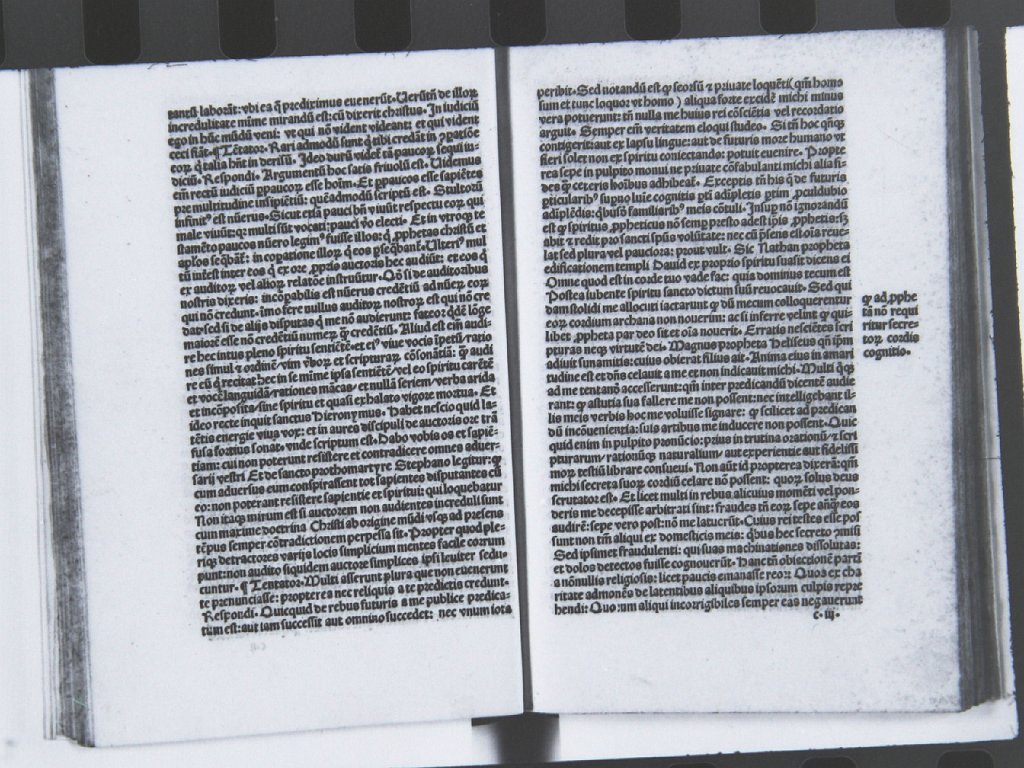 tantū laborāt: vbi ea q̄ prediximus euenerūt. Uersūtn̄ de illoꝝ
incredulitate mīme mirandū est: cū dixerit christus. In iudiciū
ego in hūc mūdū veni: vt qui nō vident videant: et qui vident
ceci fiāt. ¶ Tētator. Rari admodū sunt q̄ tibi credāt in ꝑatiōe
eoꝝ q̄ talia hn̄t in derisū. Ideo durū videt̄ tā paucoꝝ sequi iu-
diciū. Respondi. Argumentū hoc satis friuolū est. Uidemus
em̄ rectū iudiciū ꝑpaucoꝝ esse hoīm. Et ꝑpaucos esse sapiētes
pre multitudine insipiētiū: quēadmodū scriptū est. Stultorū
infinitꝰ est nūerus. Sicut etiā pauci bn̄ viuūt respectu eoꝝ qui
male viuūt: qꝛ multi sūt vocati: pauci v̄o electi. Et in vtroqꝫ te
stamēto paucos nūero legimꝰ fuisse illos: q̄ ꝓphetas christū et
aplos seq̄bāt̄: in cōpatione illoꝝ q̄ eos pseq̄bant̄. Ulteriꝰ mul
tū intest inter eos q̄ ex ore ꝓprio auctoris hec audiūt: et eos q̄
ex auditoꝝ vel alioꝝ relatōe instruūtur. Qō si de auditoribus
nostris dixeris: incōpabilis est nūerus credētiū ad nūeꝝ eoꝝ
qui nō credunt. imo fere nullus auditoꝝ nostroꝝ est qui nō cre
dat. sed si de alijs disputas q̄ me nō audierunt: fateor qdē lōge
maiorē esse nō credētiū numeꝝ q̄ credētiū. Aliud est em̄ audi-
re hec intus pleno spiritu sentiēte. et eiꝰ viue vocis īpetū. ratio
nes simul ⁊ ordinē. vim vboꝝ et scripturaꝝ cōsonātiā: q̄ audi
re eū q̄ recitat hec in se mīme ipsa sentiētē. vel eo spiritu carētē
et vocē languidā. rationes mācas. et nullā seriem. verba arida
et incōposita. sine spiritu et quasi exhalato vigore mortua. Et
ideo recte inquit sanctus Hieronymus. Habet nescio quid la-
tētis energie viua vox: et in aures discipuli de auctoris ore trā
fusa fortius sonat. vnde scriptum est. Dabo vobis os et sapiē-
tiam: cui non poterunt resistere et contradicere omnes aduer-
sarij vestri. Et de sancto prothomartyre Stephano legitur: qꝙ
cum aduersus eum conspirassent tot sapientes disputantes cū
eo: non poterant resistere sapientie et spiritui: qui loquebatur
Non itaqꝫ mirum est si auctorem non audientes increduli sunt
cum maxime doctrina Christi ab origine mūdi vsqꝫ ad presens
tēpus semper cōtradictionem perpessa sit. Propter quod ple-
riqꝫ detractores varijs locis simplicium mentes facile corrum
punt: non audito siquidem auctore simplices ipsi leuiter sedu-
cuntur. ¶ Tentator. Multi asserunt plura que non euenerunt
te prenunciasse: propterea nec reliquis a te predictis credunt.
Respondi. Quicquid de rebus futuris a me publice predica-
tum est: aut iam successit aut omnino succedet: nec vnum iota
peribit. Sed notandū est qꝙ seorsū ⁊ priuate loquēti( qm̄ homo
sum et tunc loquor vt homo ) aliqua forte excidē michi minus
vera potuerunt: tn̄ nulla me huius rei cōsciētia vel recordatio
arguit. Semper em̄ veritatem eloqui studeo. Si tn̄ hoc q̄nqꝫ
contigerit: aut ex lapsu lingue: aut de futuris more humano vt
fieri solet non ex spiritu coniectando: potuit euenire. Propte
rea sepe in pulpito monui ne priuate cōfabulanti michi alia fi-
des q̄ ceteris hoibus adhibeat̄. Exceptis tn̄ his q̄ de futuris
ꝑticularibꝰ supno lumīe cognitis ꝑti adipletis ꝑtim ꝓculdubio
adiplēdis: q̄busdā familiaribꝰ meis cōtuli. Insup nō ignorandū
est qꝙ spiritus ꝓpheticus nō semp presto adest ip̄is ꝓphetis: sꝫ
abit ⁊ redit pro sancti sp̄us volūtate: nec cū p̄sens est oīa reue-
lat sed plura vel pauciora: prout vult. Sic Nathan propheta
edificationem templi Dauid ex proprio spiritu suasit dicens ei
Omne quod est in corde tuo vade fac: quia dominus tecum est
Postea iubente spiritu sancto dictum suū reuocauit. Sed qui
dam stolidi me allocuti iactarunt qꝙ dū mecum colloquerentur
eoꝝ cordium archana non nouerim: ac si inferre velint qꝙ qui-
libet ꝓpheta par deo sit et oīa nouerit. Erratis nesciētes scri
pturas neqꝫ virtutē dei. Magnus propheta Heliseus qn̄ ip̄m
adiuit sunamitis: cuius obierat filius ait. Anima eius in amari
tudine est et dn̄s celauit a me et non indicauit michi. Multi q̄qꝫ
ad me tentamō accesserunt: qm̄ inter predicandū dicentē audie
rant: qꝙ astutia sua fallere me non possent: nec intellegebant il-
lis meis verbis hoc me voluisse signare: qꝙ scilicet ad predican
dū incōueniētia: suis artibus me inducere non possent. Quic
quid enim in pulpito pronūcio: prius in trutina orationū ⁊ scri
pturarum. rationūqꝫ naturalium. aut experientie aut fidelissi
moꝝ testiū librare consueui. Non aūt id propterea dixerā: qm̄
michi secreta suoꝝ cordiū celare nō possent: quoꝝ solus deus
scrutator est. Et licet multi in rebus alicuius momēti vel pon-
deris me decepisse arbitrati sint: fraudes tn̄ eoꝝ sepe anq̄ eos
audirē: sepe vero post: nō me latuerūt. Cuius rei testes esse pos
sunt non tm̄ aliqui ex domesticis meis: q̄bus hec secreto ꝓmisi
Sed ipsimet fraudulenti: qui suas machinationes dissolutas:
et dolos detectos fuisse cognouerūt. Hanc tn̄ obiectionē parti
a nōnullis religiosis: licet paucis emanasse reor: Quos ex cha
ritate admonēs de latentibus aliquibus ipsorum culpis repre
hendi: Quorum aliqui incorrigibiles semper eas negauerunt
c. iij.
qꝙ ad ꝓphe
tā nō requi
ritur secre-
toꝝ cordis
cognitio.